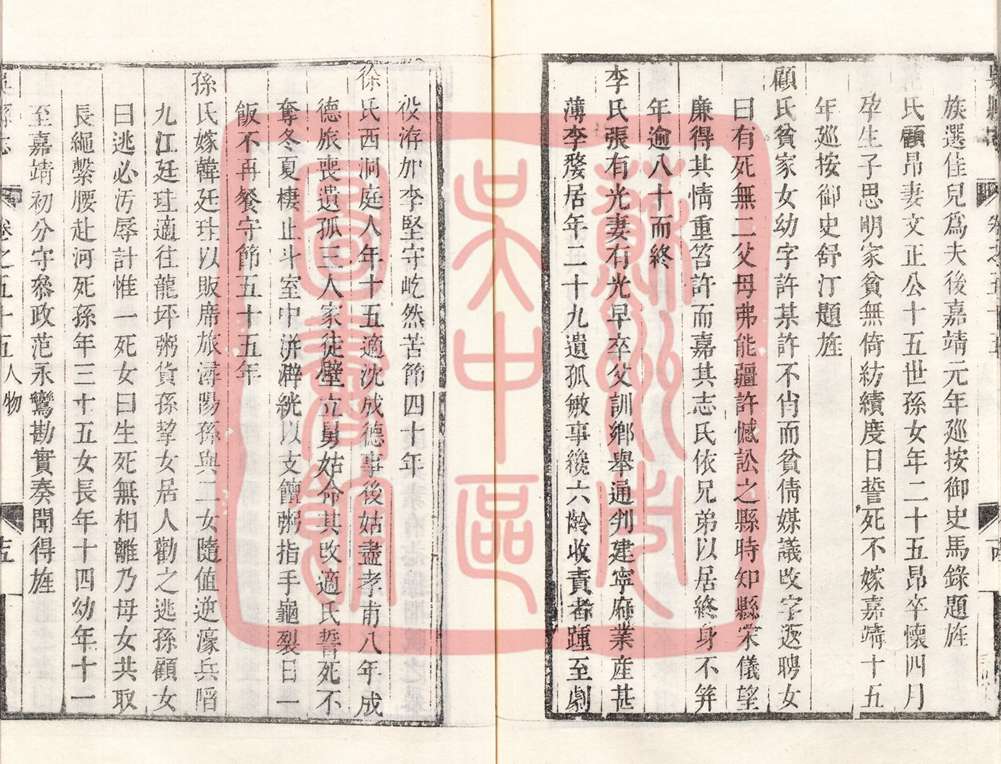 族選佳兒爲夫後嘉靖元年廵按御史馬錄題旌
氏顧昂妻文正公十五世孫女年二十五昂卒懷四月
孕生子思明家貧無倚紡績度日誓死不嫁嘉靖十五
年廵按御史舒汀題旌
顧氏貧家女幼字許某許不肖而貧倩媒議改字返聘女
曰有死無二父母弗能疆許憾訟之縣時知縣宋儀望
廉得其情重笞許而嘉其志氏依兄弟以居終身不笄
年逾八十而終
李氏張有光妻有光早卒父訓鄉舉通判建寧府業産甚
薄李嫠居年二十九遺孤敏事纔六齡收責者踵至劇
役洊加李堅守屹然苦節四十年
徐氏西洞庭人年十五適沈成德事後姑盡孝甫八年成
德旅喪遺孤三人家徒壁立舅姑命其改適氏誓死不
奪冬夏棲止斗室中洴澼絖以支饘粥指手龜裂日一
飯不再餐守節五十五年
孫氏嫁韓廷珪以販席旅潯陽孫與二女隨值逆濠兵䧟
九江廷珪適往龍坪粥貨孫挈女居人勸之逃孫顧女
曰逃必汚辱計惟一死女曰生死無相離乃母女共取
長繩繫腰赴河死孫年三十五女長年十四幼年十一
至嘉靖初分守參政范永鸞勘實奏聞得旌
卷之五十五 人物
蘇州市
吳中區
圖書館